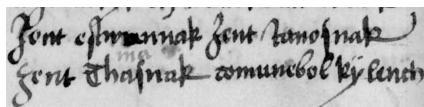 Zent estwannak Zent tanosnak
Zent Thasnak comunebol kÿlench